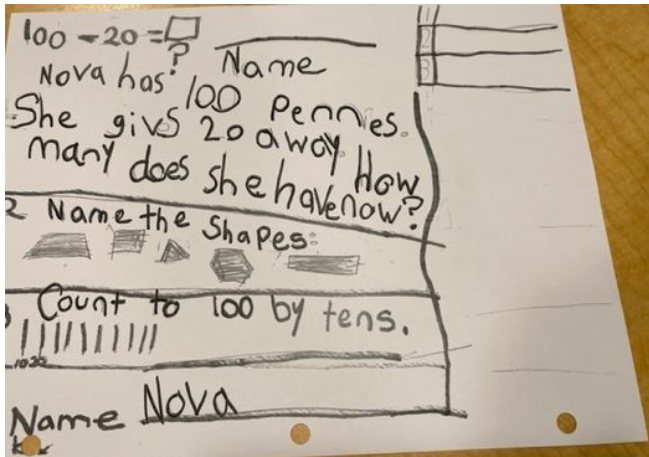 100 - 20 = □
?
Name
Nova has 100 Pennies.
She givs 20 away. How
many does she have now?
2 Name the Shapes:
Count to 100 by tens.
10 20
Name Nova
1
2
3